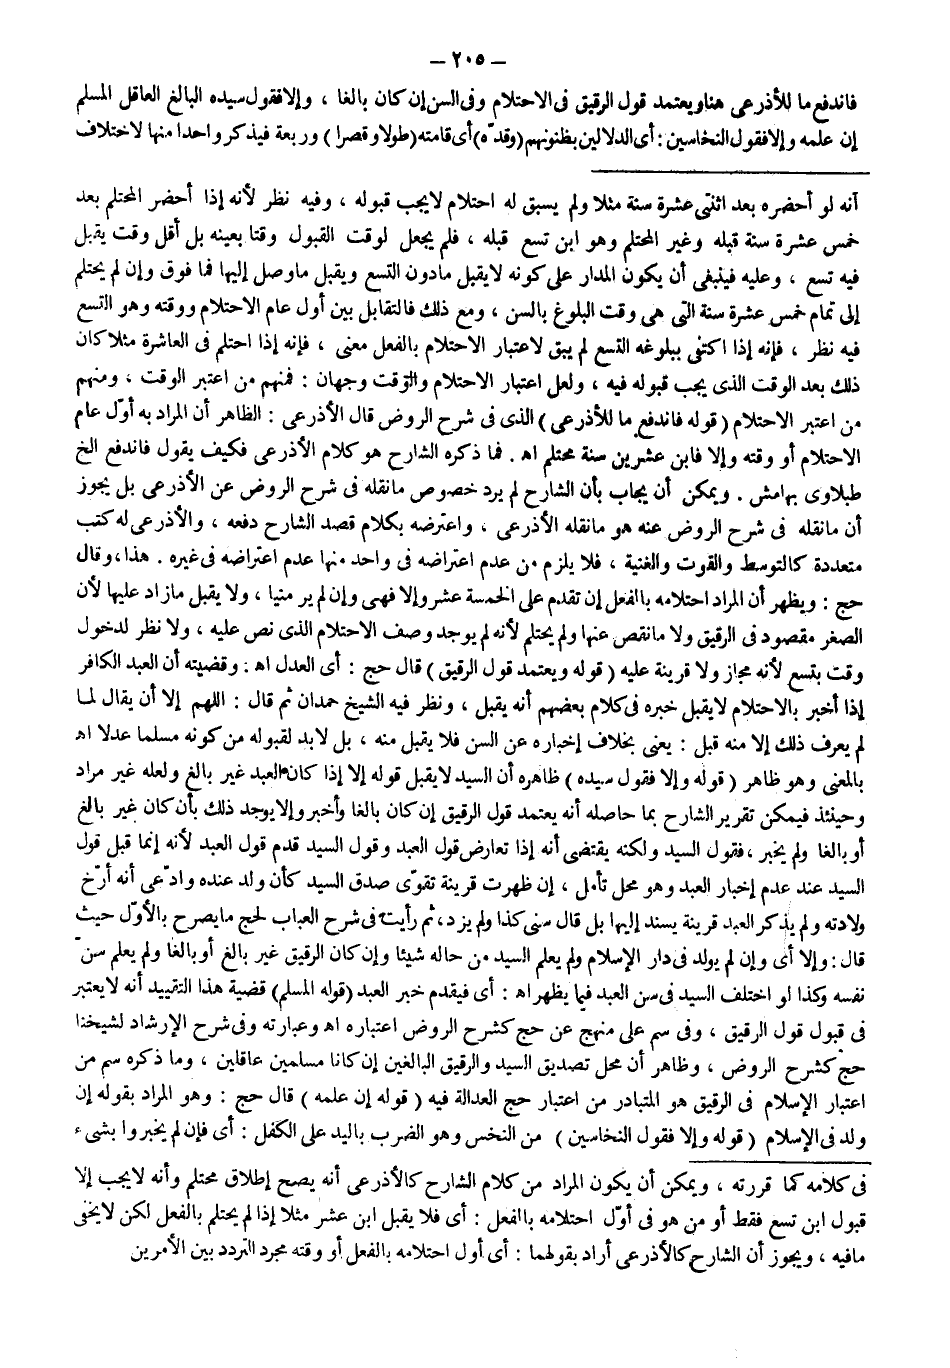 – ٢٠٥ –
فاندفع ما للأذرعى هنا ويعتمد قول الرقيق فى الاحتلام وفى السن إن كان بالغا ، وإلا فقول سيده البالغ العاقل المسلم
إن علمه وإلا فقول النخاسين : أى الدلالين بظنونهم (وقدّه) أى قامته (طولا وقصرا) وربعة فيذكر واحدا منها لاختلاف
أنه لو أحضره بعد اثنتى عشرة سنة مثلا ولم يسبق له احتلام لايجب قبوله ، وفيه نظر لأنه إذا أحضر المحتلم بعد
خمس عشرة سنة قبله وغير المحتلم وهو ابن تسع قبله ، فلم يجعل لوقت القبول وقتا بعينه بل أقل وقت يقبل
فيه تسع ، وعليه فينبغى أن يكون المدار على كونه لايقبل مادون التسع ويقبل ماوصل إليها فما فوق وإن لم يحتلم
إلى تمام خمس عشرة سنة التى هى وقت البلوغ بالسن ، ومع ذلك فالتقابل بين أول عام الاحتلام ووقته وهو التسع
فيه نظر ، فإنه إذا اكتفى ببلوغه التسع لم يبق لاعتبار الاحتلام بالفعل معنى ، فإنه إذا احتلم فى العاشرة مثلا كان
ذلك بعد الوقت الذى يجب قبوله فيه ، ولعل اعتبار الاحتلام والتوقت وجهان : فمنهم من اعتبر الوقت ، ومنهم
من اعتبر الاحتلام ( قوله فاندفع ما للأذرعى ) الذى فى شرح الروض قال الأذرعى : الظاهر أن المراد به أوّل عام
الاحتلام أو وقته وإلا فابن عشرين سنة محتلم اه . فما ذكره الشارح هو كلام الأذرعى فكيف يقول فاندفع الخ
طبلاوى بهامش . ويمكن أن يجاب بأن الشارح لم يرد خصوص مانقله فى شرح الروض عن الأذرعى بل يجوز
أن مانقله فى شرح الروض عنه هو مانقله الأذرعى ، واعترضه بكلام قصد الشارح دفعه ، والأذرعى له كتب
متعددة كالتوسط والقوت والغنية ، فلا يلزم من عدم اعتراضه فى واحد منها عدم اعتراضه فى غيره . هذا ، وقال
حج : ويظهر أن المراد احتلامه بالفعل إن تقدم على الخمسة عشر وإلا فهى وإن لم ير منيا ، ولا يقبل مازاد عليها لأن
الصغر مقصود فى الرقيق ولا مانقص عنها ولم يحتلم لأنه لم يوجد وصف الاحتلام الذى نص عليه ، ولا نظر لدخول
وقت بتسع لأنه مجاز ولا قرينة عليه ( قوله ويعتمد قول الرقيق ) قال حج : أى العدل اه . وقضيته أن العبد الكافر
إذا أخبر بالاحتلام لايقبل خبره فى كلام بعضهم أنه يقبل ، ونظر فيه الشيخ حمدان ثم قال : اللهم إلا أن يقال لما
لم يعرف ذلك إلا منه قبل : يعنى بخلاف إخباره عن السن فلا يقبل منه ، بل لابد لقبوله من كونه مسلما عدلا اه
بالمعنى وهو ظاهر ( قوله وإلا فقول سيده ) ظاهره أن السيد لايقبل قوله إلا إذا كان العبد غير بالغ ولعله غير مراد
وحينئذ فيمكن تقرير الشارح بما حاصله أنه يعتمد قول الرقيق إن كان بالغا وأخبر وإلا يوجد ذلك بأن كان غير بالغ
أو بالغا ولم يخبر ، فقول السيد ولكنه يقتضى أنه إذا تعارض قول العبد وقول السيد قدم قول العبد لأنه إنما قبل قول
السيد عند عدم إخبار العبد وهو محل تأمل ، إن ظهرت قرينة تقوّى صدق السيد كأن ولد عنده وادّعى أنه أرّخ
ولادته ولم يذكر العبد قرينة يسند إليها بل قال سنى كذا ولم يزد ، ثم رأيت فى شرح العباب لحج مايصرح بالأوّل حيث
قال : وإلا أى وإن لم يولد فى دار الإسلام ولم يعلم السيد من حاله شيئا وإن كان الرقيق غير بالغ أو بالغا ولم يعلم سنّ
نفسه وكذا لو اختلف السيد فى سن العبد فيما يظهر اه : أى فيقدم خبر العبد (قوله المسلم) قضية هذا التقييد أنه لايعتبر
فى قبول قول الرقيق ، وفى سم على منهج عن حج كشرح الروض اعتباره اه وعبارته وفى شرح الإرشاد لشيخنا
حج كشرح الروض ، وظاهر أن محل تصديق السيد والرقيق البالغين إن كانا مسلمين عاقلين ، وما ذكره سم من
اعتبار الإسلام فى الرقيق هو المتبادر من اعتبار حج العدالة فيه ( قوله إن علمه ) قال حج : وهو المراد بقوله إن
ولد فى الإسلام ( قوله وإلا فقول النخاسين ) من النخس وهو الضرب باليد على الكفل : أى فإن لم يخبروا بشىء
فى كلامه كما قررته ، ويمكن أن يكون المراد من كلام الشارح كالأذرعى أنه يصح إطلاق محتلم وأنه لايجب إلا
قبول ابن تسع فقط أو من هو فى أوّل احتلامه بالفعل : أى فلا يقبل ابن عشر مثلا إذا لم يحتلم بالفعل لكن لايخفى
مافيه ، ويجوز أن الشارح كالأذرعى أراد بقولهما : أى أول احتلامه بالفعل أو وقته مجرد التردد بين الأمرين